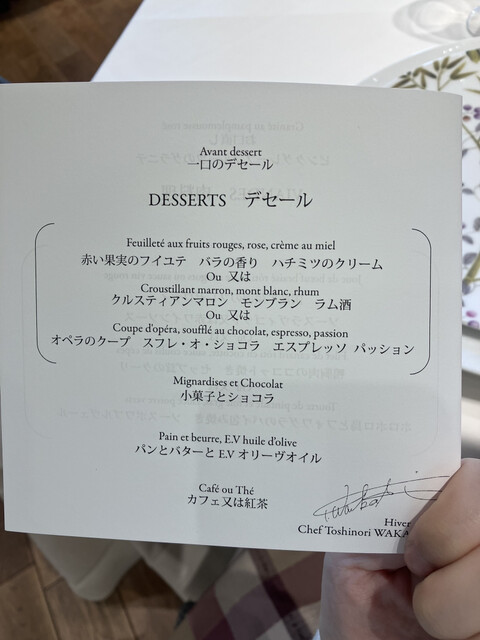 Avant dessert
一口のデセール
DESSERTS デセール
Feuilleté aux fruits rouges, rose, crème au miel
赤い果実のフイユテ バラの香り ハチミツのクリーム
Ou 又は
Croustillant marron, mont blanc, rhum
クルスティアンマロン モンブラン ラム酒
Ou 又は
Coupe d'opéra, soufflé au chocolat, espresso, passion
オペラのクープ スフレ・オ・ショコラ エスプレッソ パッション
Mignardises et Chocolat
小菓子とショコラ
Pain et beurre, E.V huile d'olive
パンとバターと E.V オリーヴオイル
Café ou Thé
カフェ又は紅茶
Hiver
Chef Toshinori WAKA